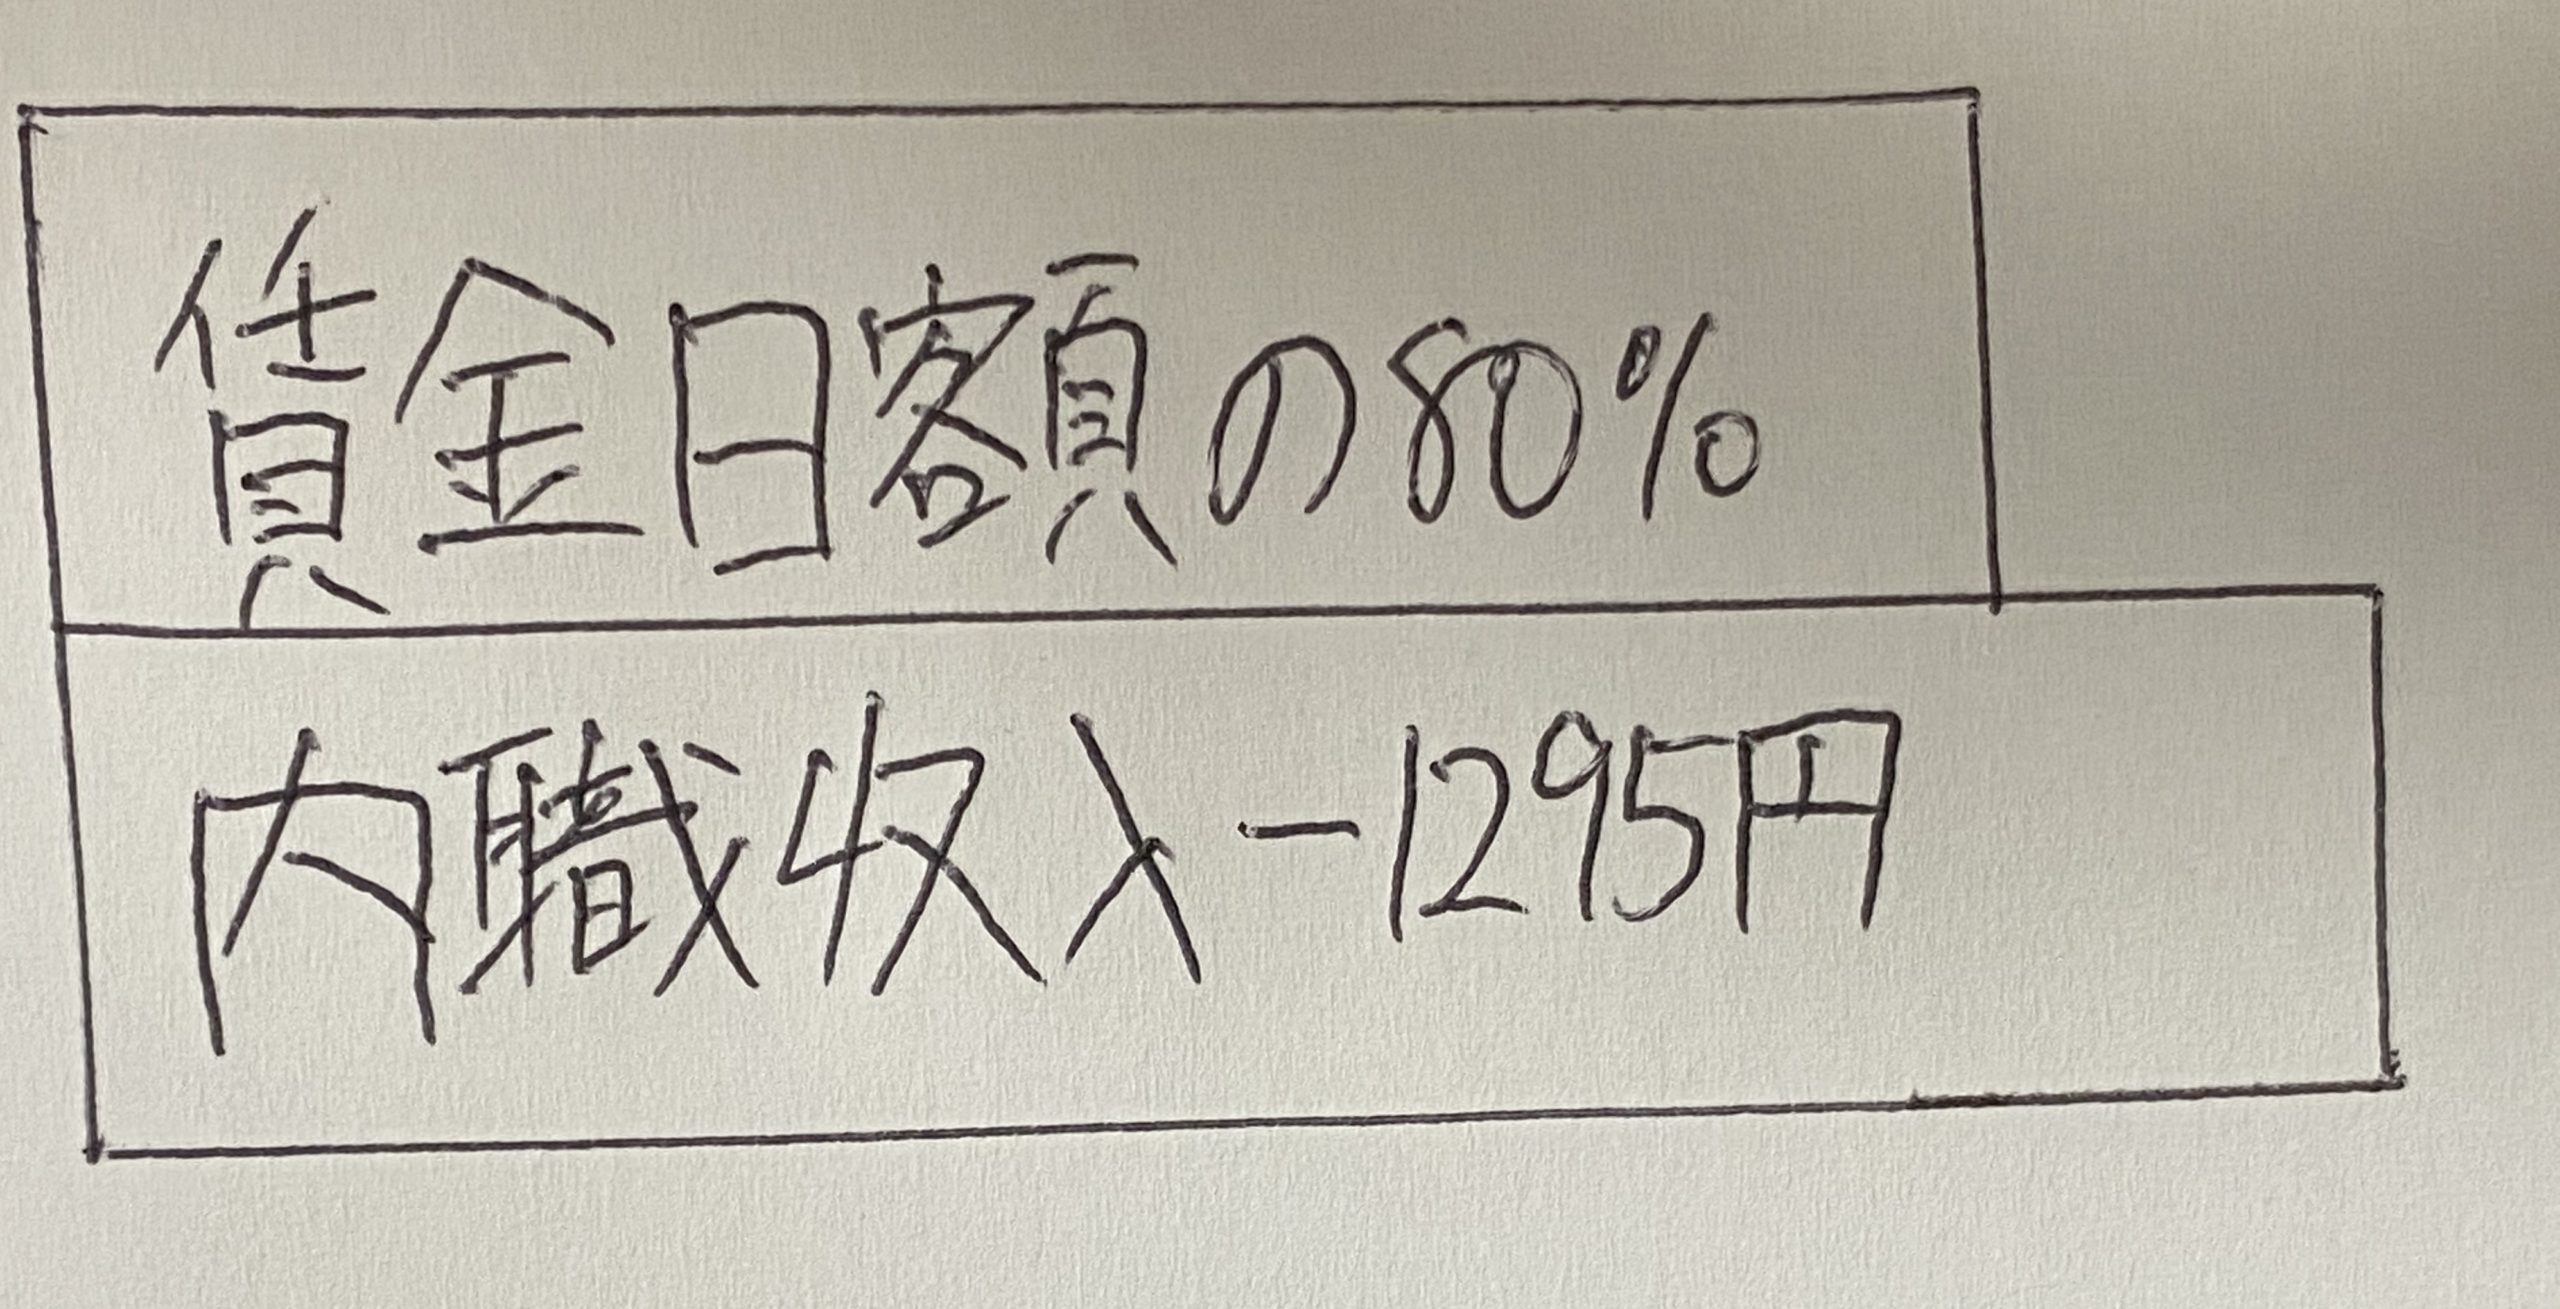 賃金日額の80%
内職収入-1295円